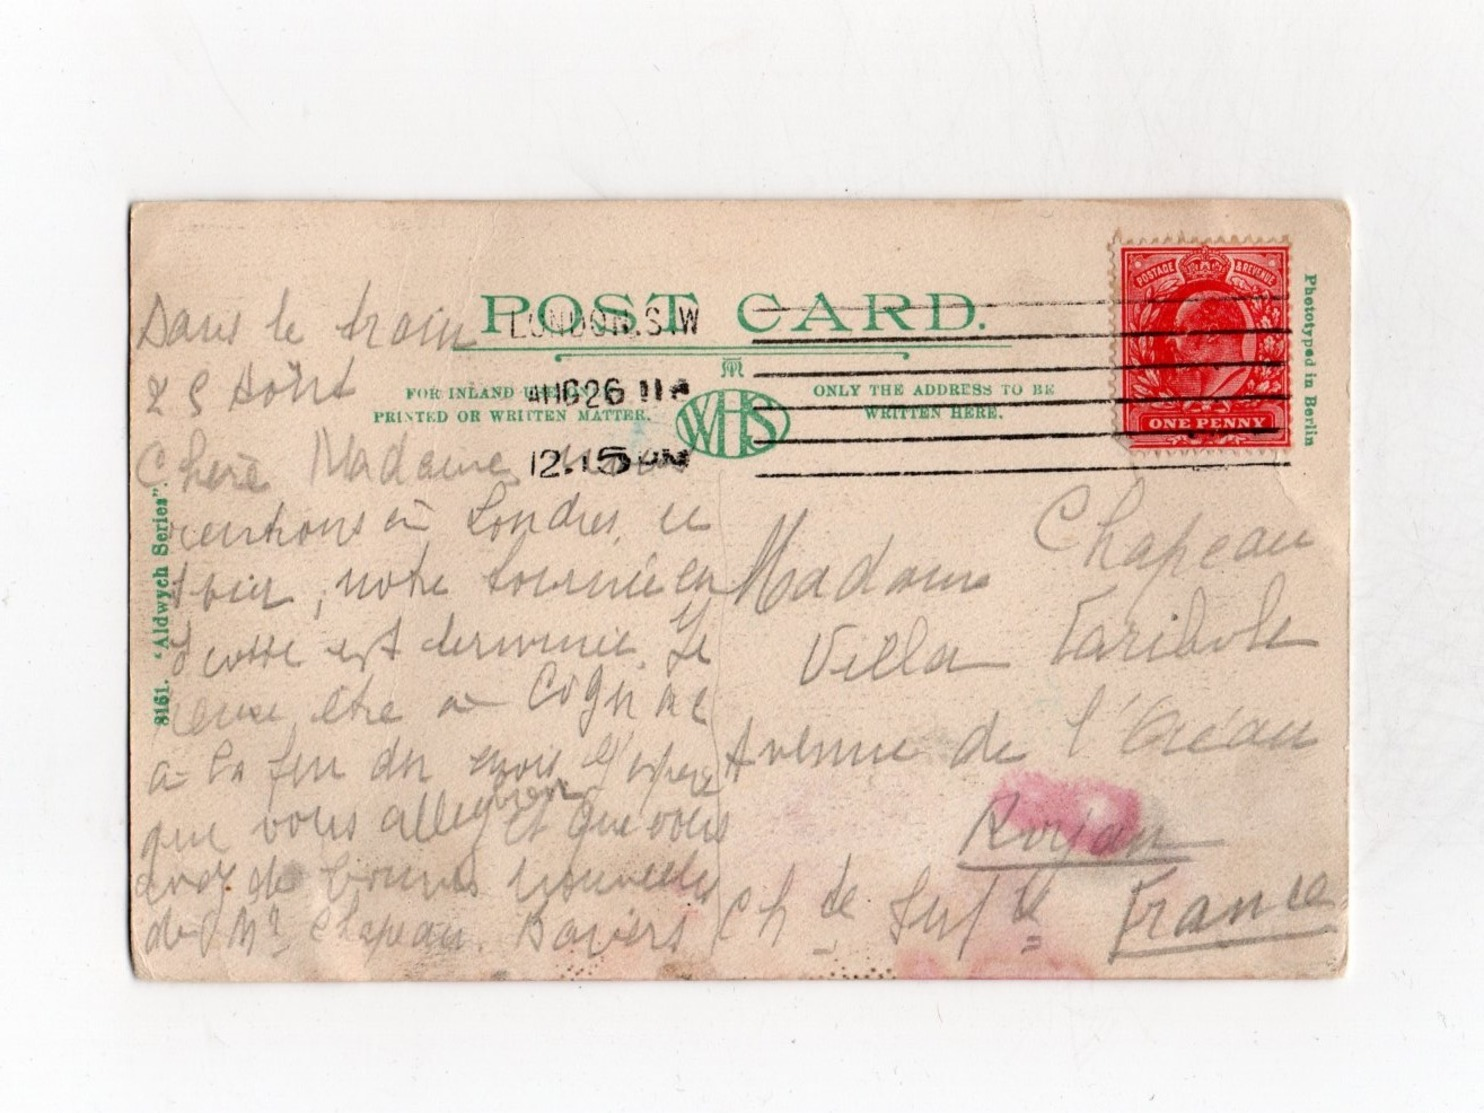 POST CARD.
LONDON.S.W
AUG 26 11
12.15 PM
FOR INLAND
PRINTED OR WRITTEN MATTER.
WHS
ONLY THE ADDRESS TO BE
WRITTEN HERE.
POSTAGE & REVENUE
ONE PENNY
Phototyped in Berlin
8161. "Aldwych Series".
Dans le train
25 Août
Chère Madame nous
rentrons à Londres, ce
soir, notre tournée en
Ecosse est terminée. Je
pense être à Cognac
a la fin du mois J'espère
que vous allez bien et que vous
avez de bonnes nouvelles
de Mr Chapeau. Baisers
Madame Chapeau
Villa Faribole
Avenue de l'Océan
Royan
Ch de Inf re
France